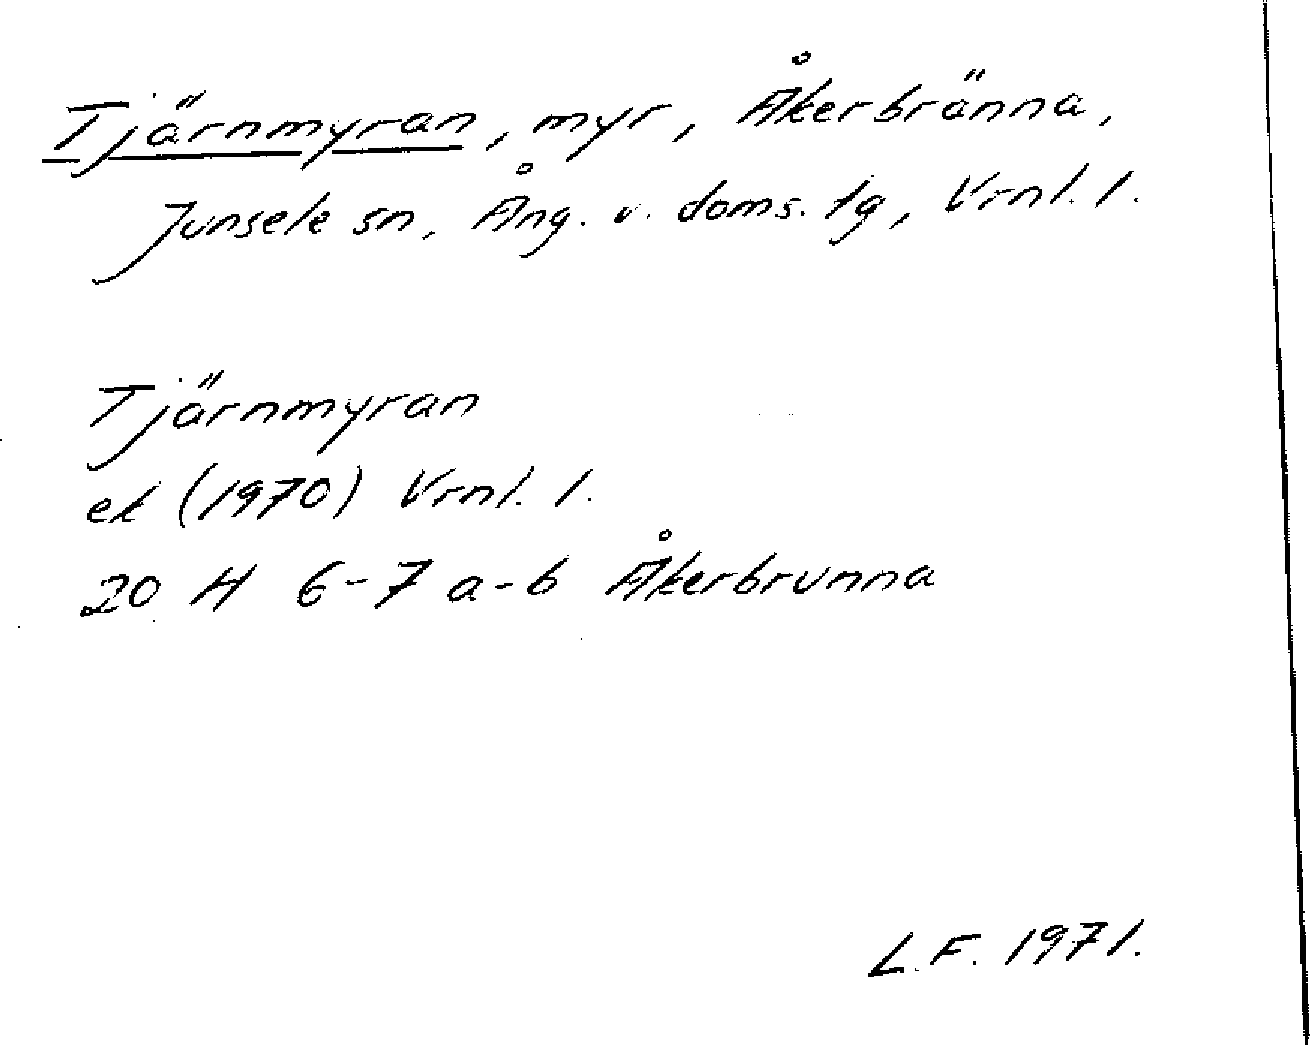 Tjärnmyran, myr, Åkerbränna,
Junsele sn, Ång. v. doms. tg, Vrnl. l.
Tjärnmyran
ek (1970) Vrnl. l.
20 H 6-7 a-b Åkerbrunna
L.F. 1971.